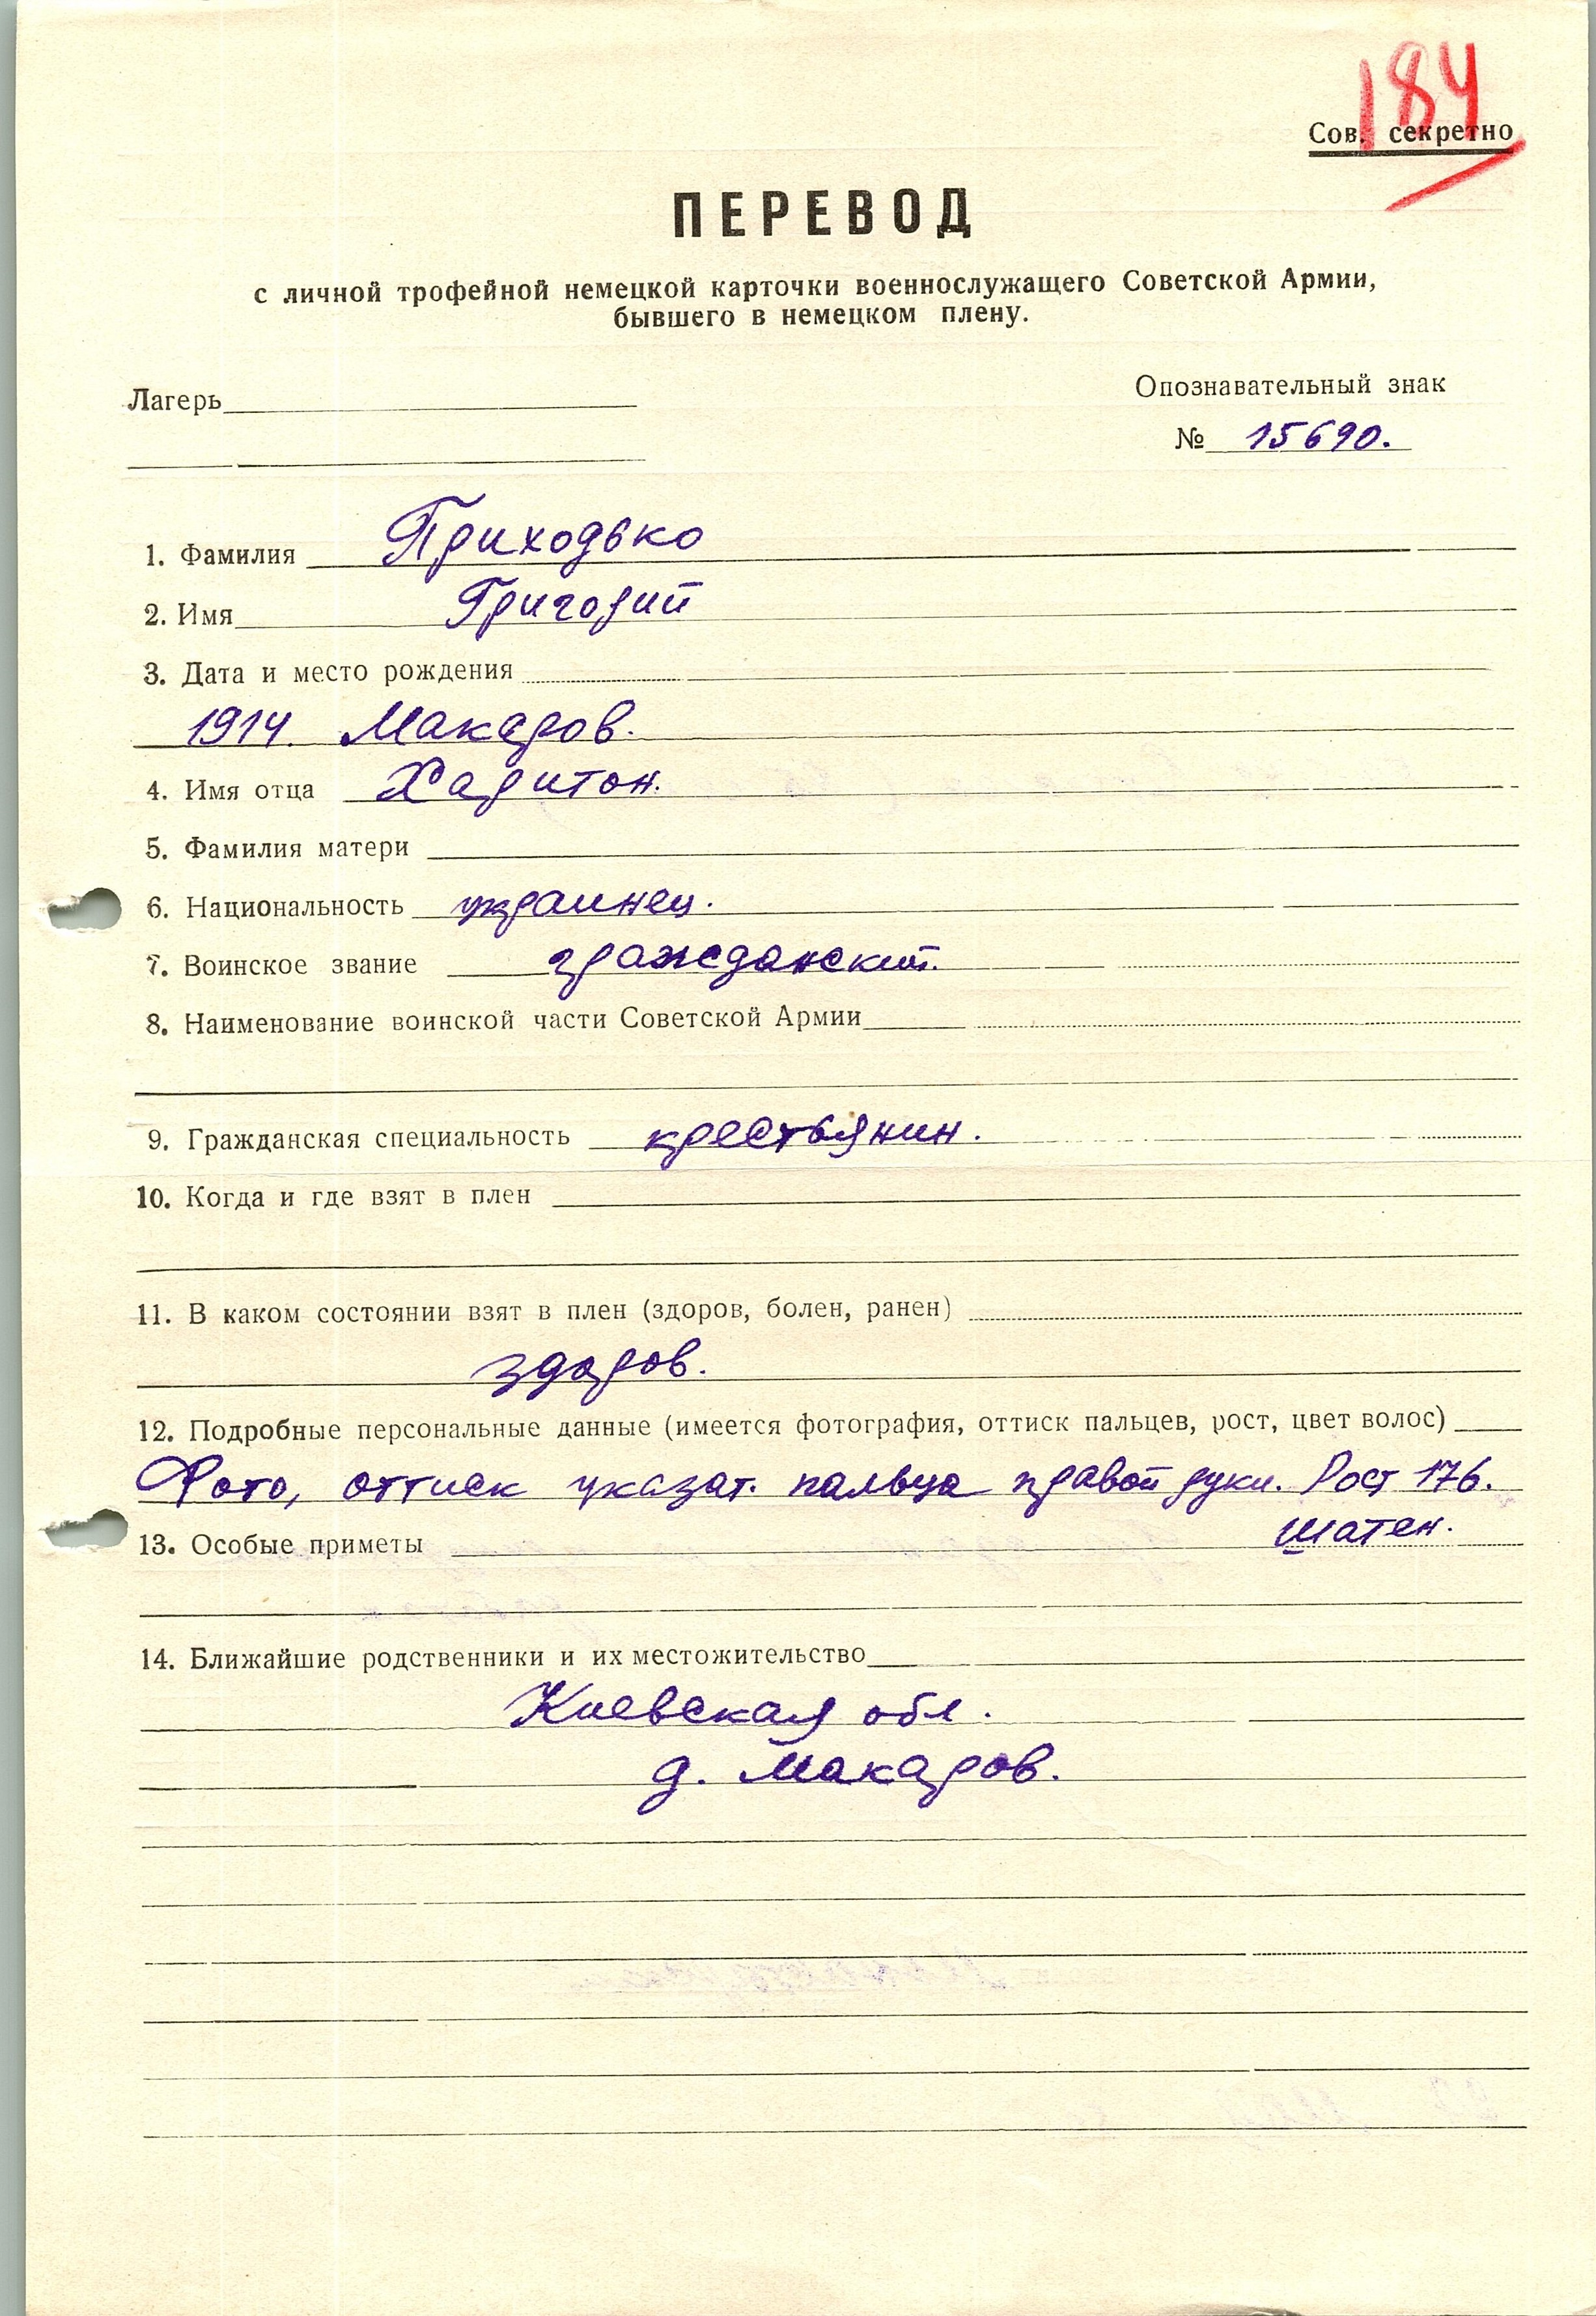 184
Сов. секретно
ПЕРЕВОД
с личной трофейной немецкой карточки военнослужащего Советской Армии,
бывшего в немецком плену.
Лагерь
Опознавательный знак
№ 15690.
1. Фамилия Приходько
2. Имя Григорий
3. Дата и место рождения
1914. Макаров.
4. Имя отца Харитон.
5. Фамилия матери
6. Национальность украинец.
7. Воинское звание гражданский.
8. Наименование воинской части Советской Армии
9. Гражданская специальность крестьянин.
10. Когда и где взят в плен
11. В каком состоянии взят в плен (здоров, болен, ранен)
здоров.
12. Подробные персональные данные (имеется фотография, оттиск пальцев, рост, цвет волос)
Фото, оттиск указат. пальца правой руки. Рост 176.
шатен.
13. Особые приметы
14. Ближайшие родственники и их местожительство
Киевская обл.
д. Макаров.